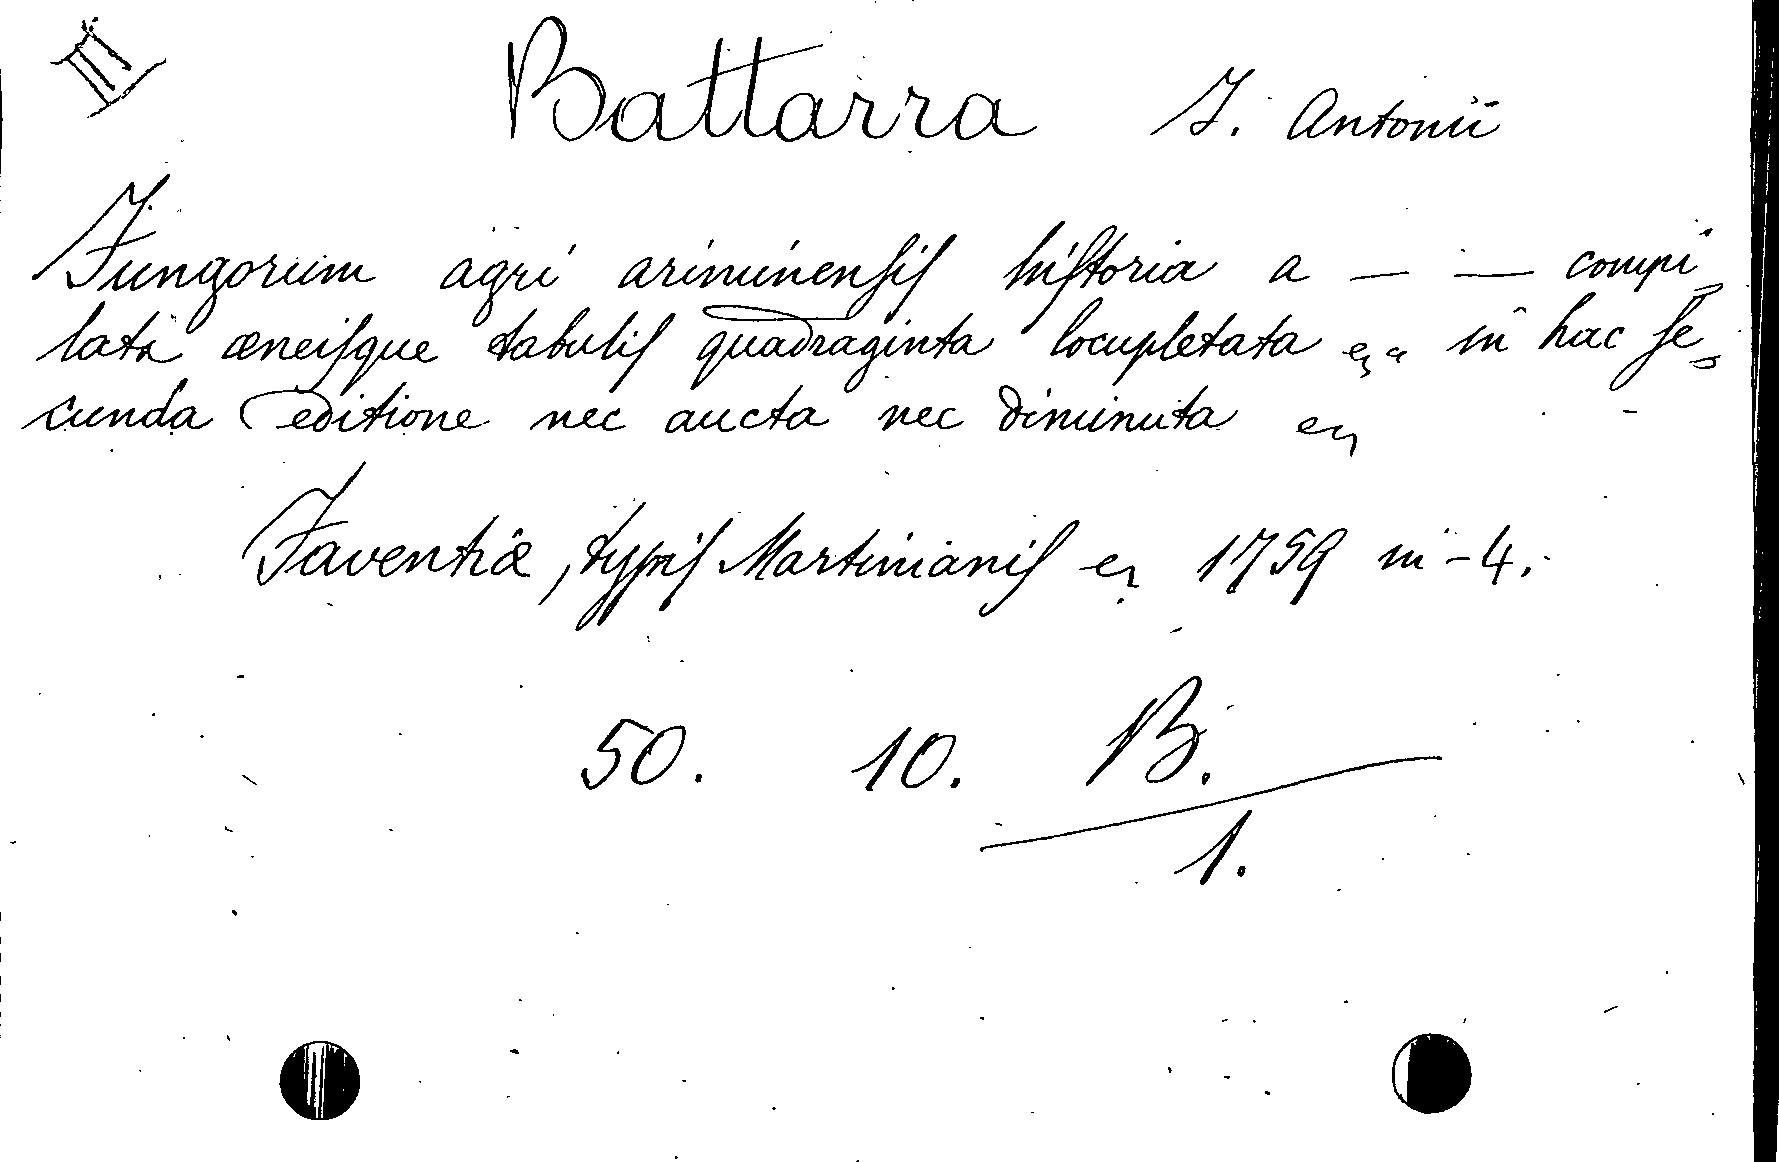 III
Battarra J. Antonii
Fungorum agri ariminensis historia a — — compi-
lata æneisque tabulis quadraginta locupletata ... in hac se-
cunda editione nec aucta nec diminuta
Faventiæ, typis Martinianis 1759 in-4.
50. 10. B.
1.